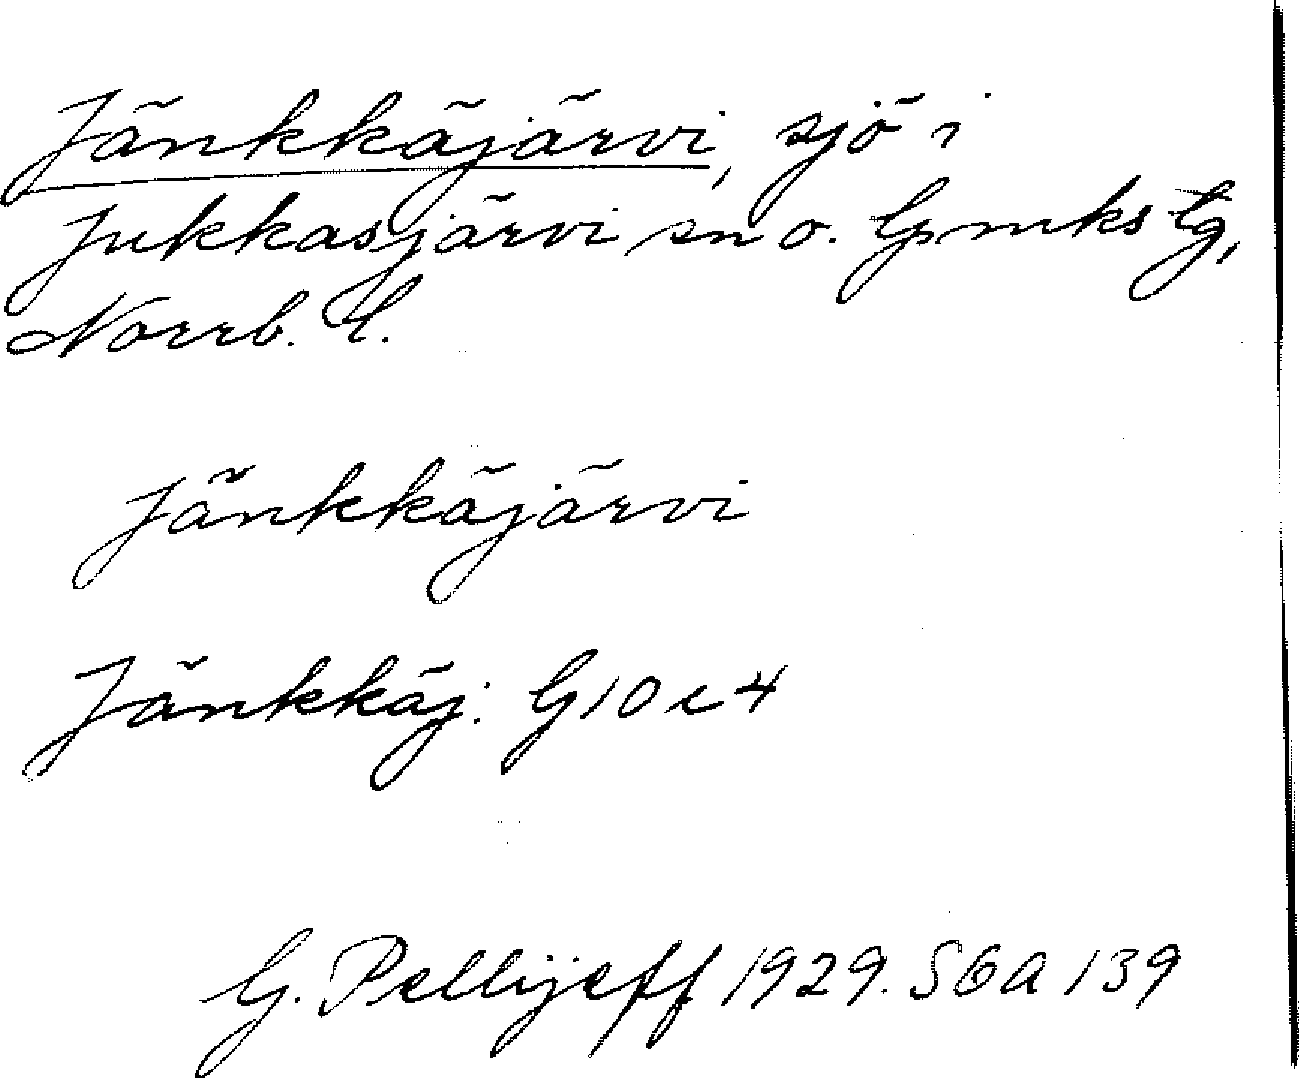 Jänkkäjärvi, sjö i
Jukkasjärvi sn o. Gpmks tg,
Norrb. l.
Jänkkäjärvi
Jänkkäj: G10c4
G. Pellijeff 1929. SGA 139